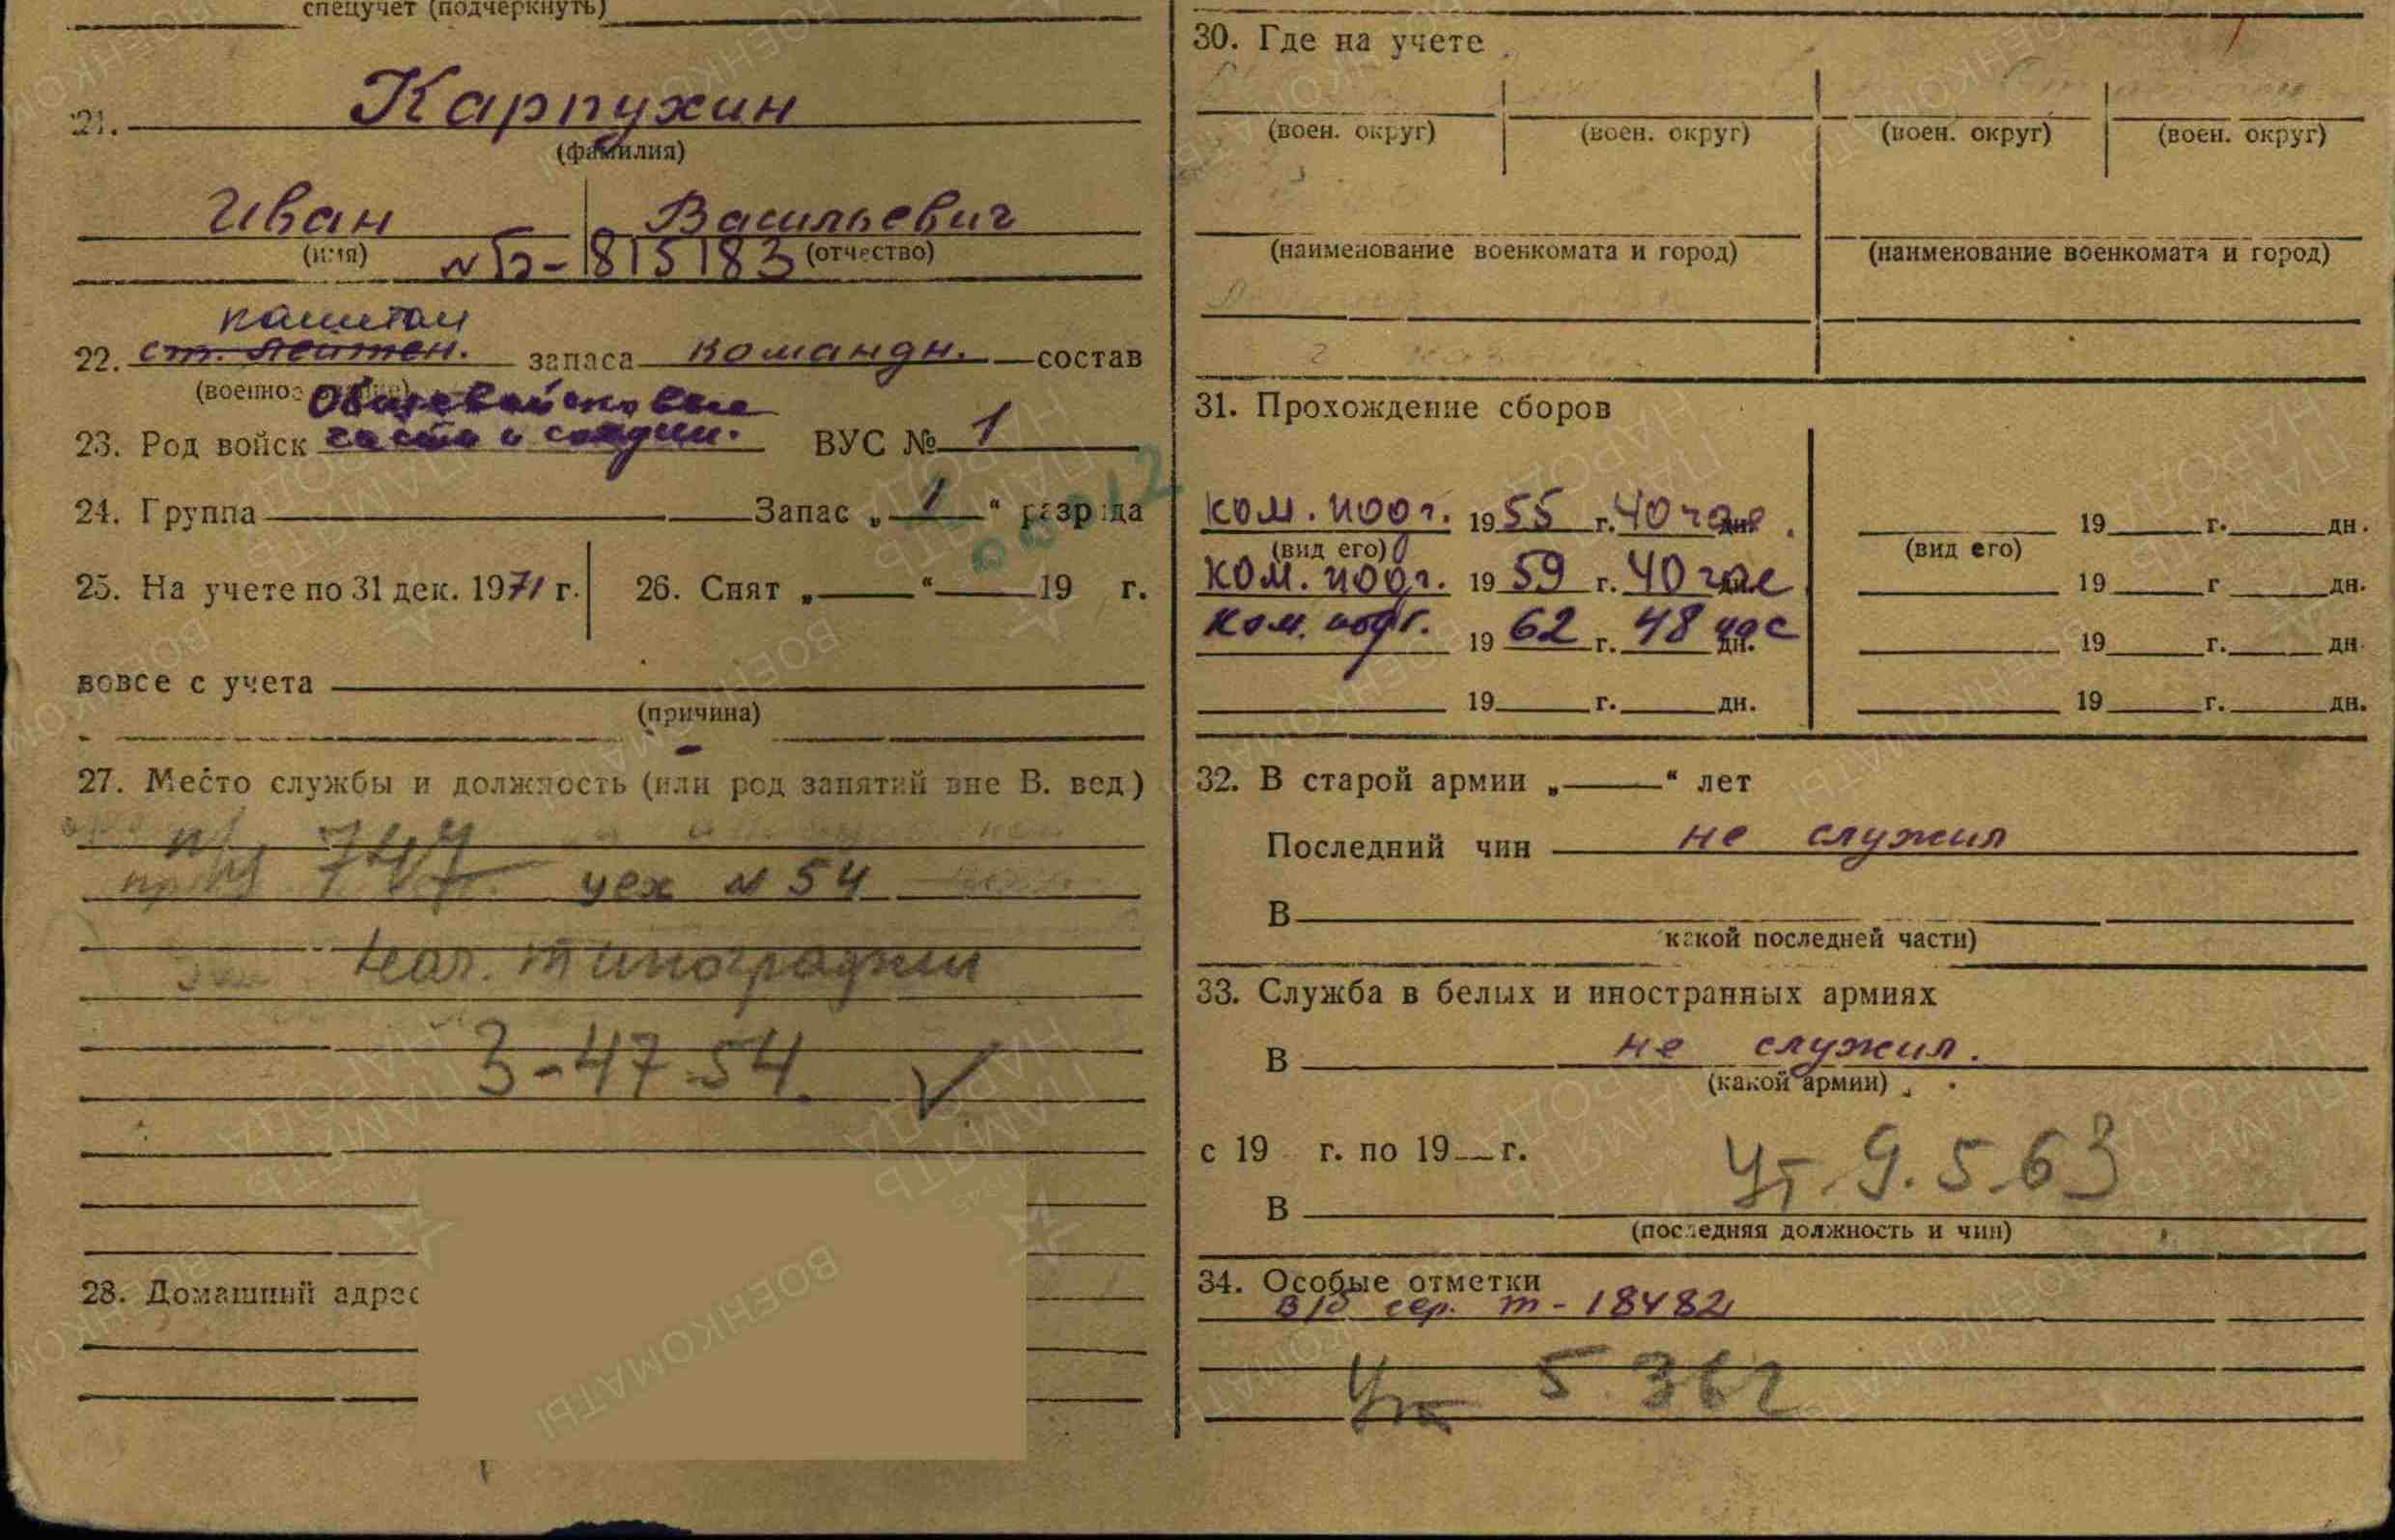 спецучет (подчеркнуть)
21. Карпухин
(фамилия)
Иван Васильевич
(имя) (отчество)
815183
капитан
22. ст. лейтен. запаса командн. состав
(военное звание)
Общевойсковые
23. Род войск части и соедин. ВУС № 1
24. Группа Запас „ 1 “ разряда
00012
25. На учете по 31 дек. 1971 г. 26. Снят „ “ 19 г.
вовсе с учета
(причина)
27. Место службы и должность (или род занятий вне В. вед.)
747
цех № 54
нач. типографии
3-47-54.
28. Домашний адрес
30. Где на учете
(воен. округ) (воен. округ) (воен. округ) (воен. округ)
(наименование военкомата и город) (наименование военкомата и город)
31. Прохождение сборов
ком. подг. 1955 г. 40 час. дн. 19 г. дн.
(вид его) (вид его)
ком. подг. 1959 г. 40 час дн. 19 г. дн.
ком. подг. 1962 г. 48 час дн. 19 г. дн.
19 г. дн. 19 г. дн.
32. В старой армии „ “ лет
Последний чин не служил
В
какой последней части)
33. Служба в белых и иностранных армиях
В не служил.
(какой армии)
с 19 г. по 19 г.
Ут. 9.5.63
В
(последняя должность и чин)
34. Особые отметки
в/б сер. т-18482
5 3 62